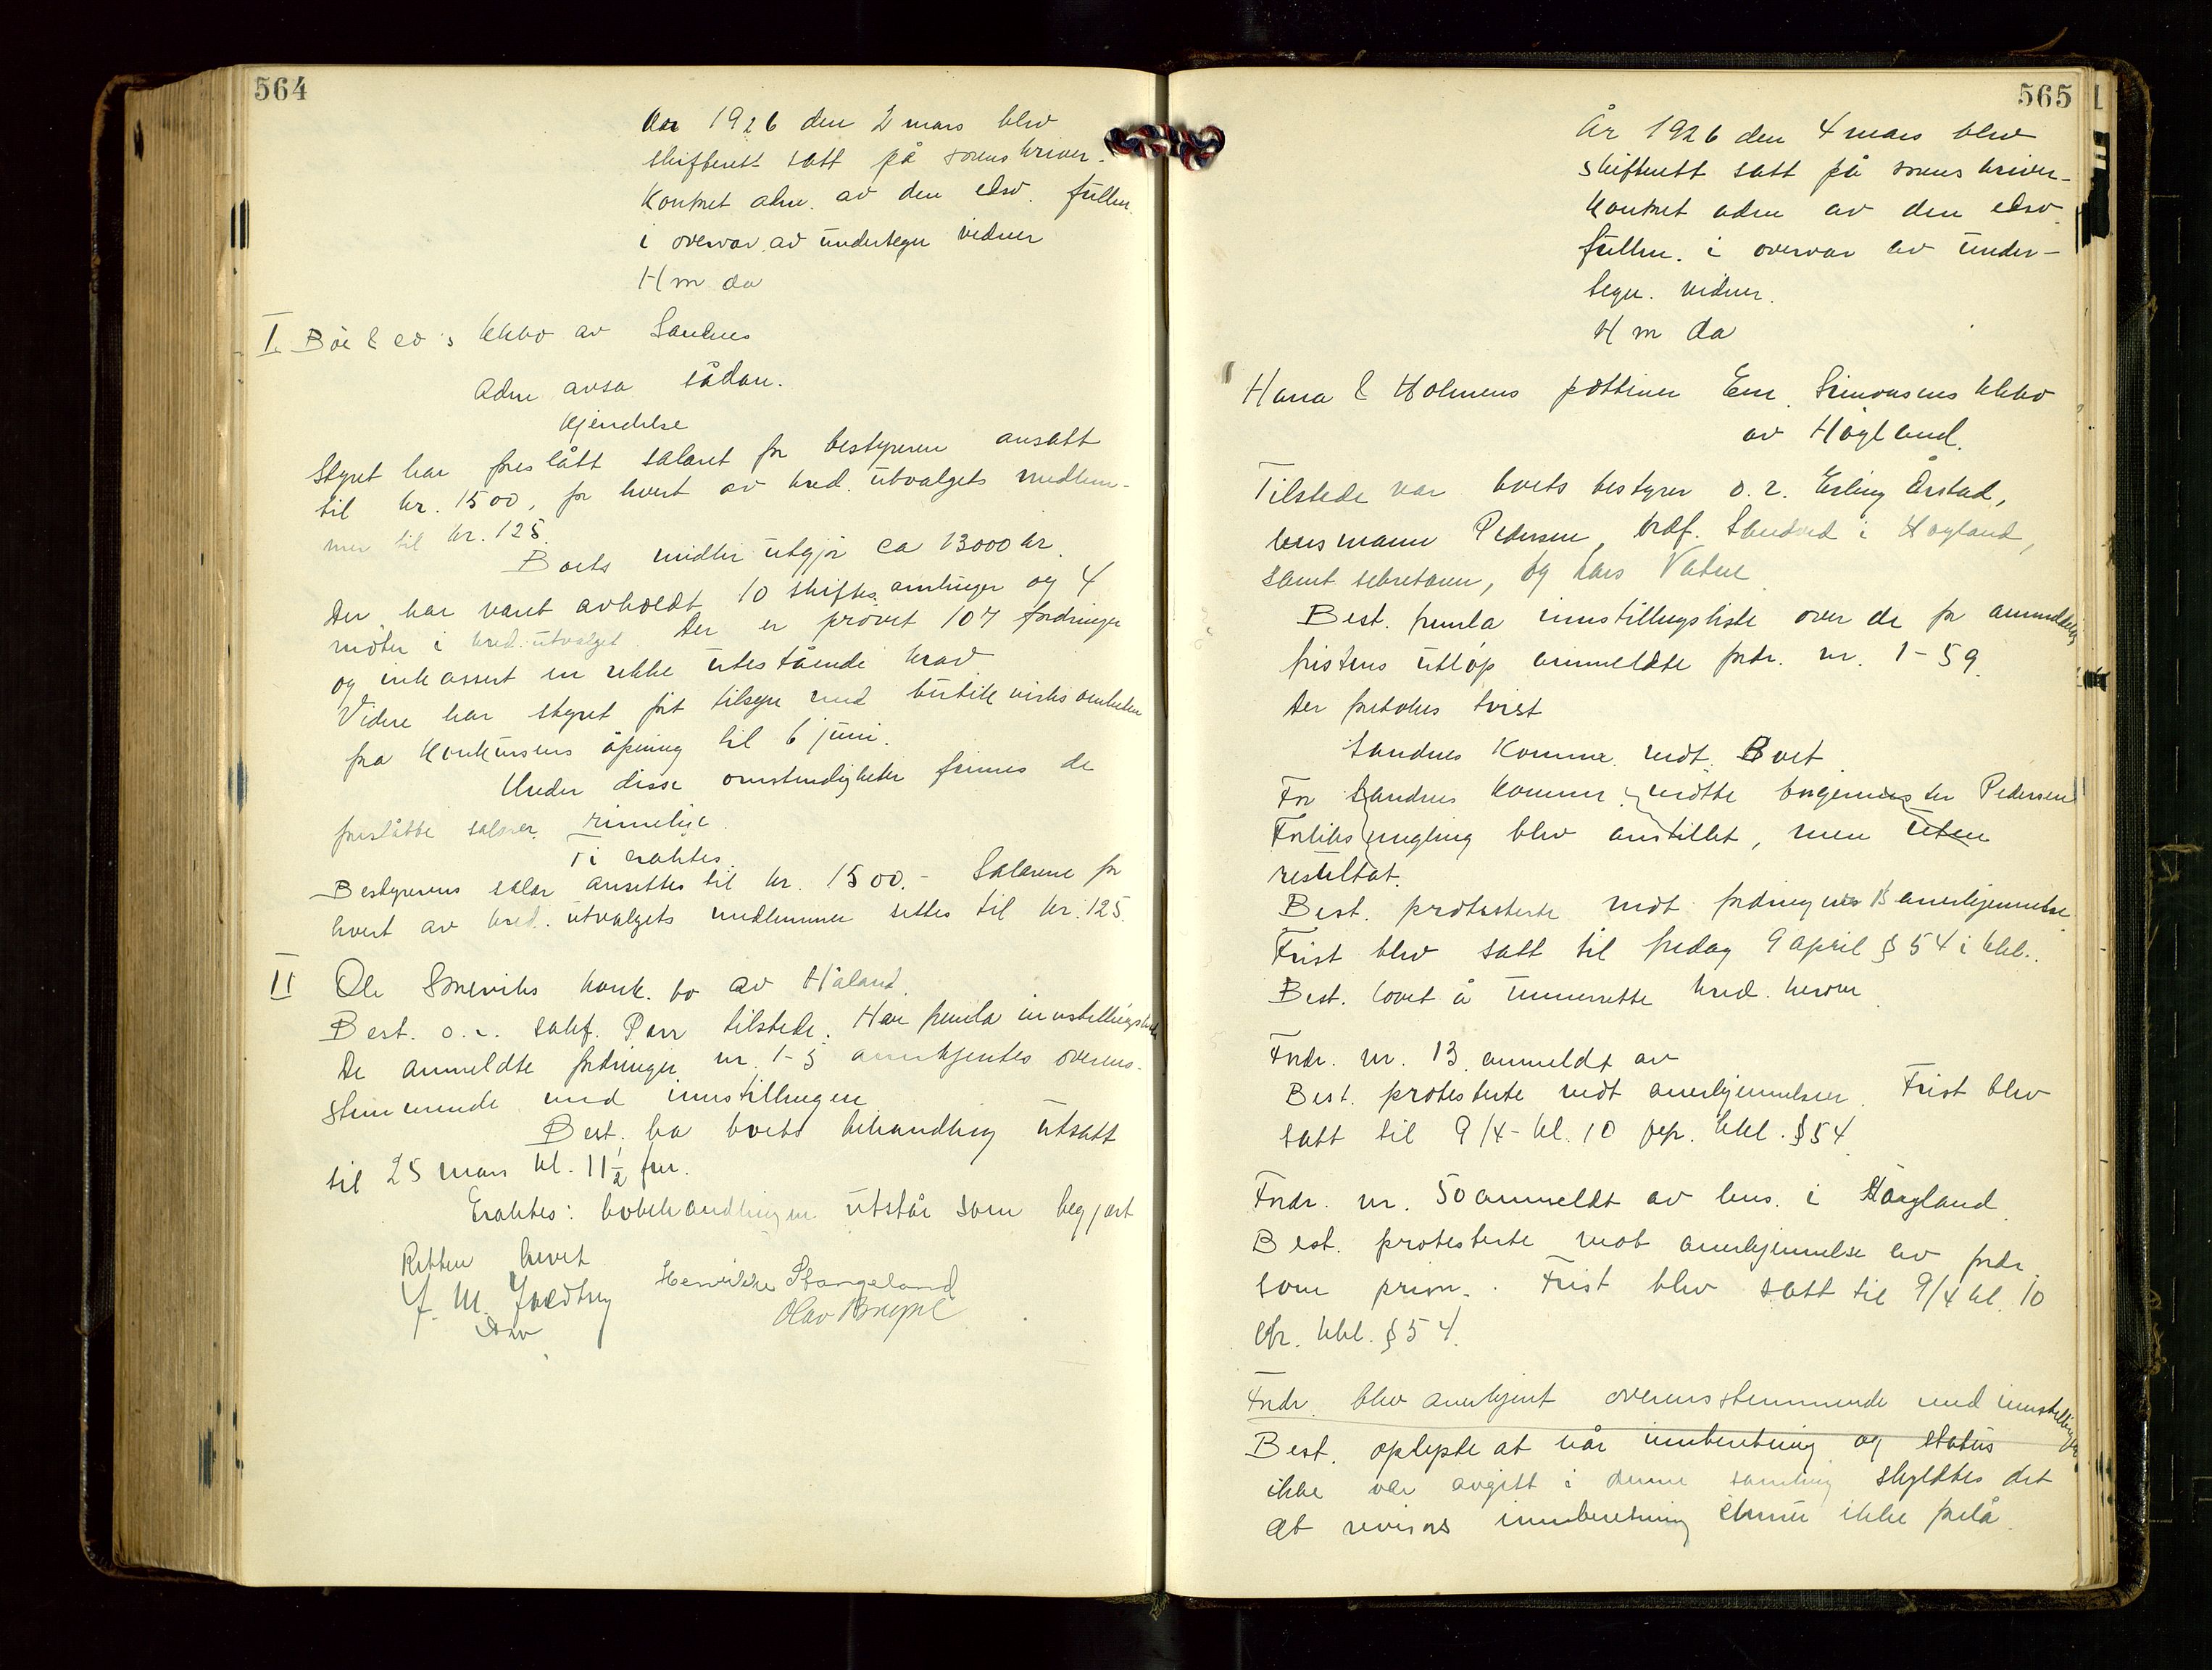 564
Aar 1926 den 2 mars blev
skifterett satt på sorenskriver-
kontret adm. av den edsv. fullm.
i overvær av undertegn vidner
H m da
I. Böe & co's kkbo av Sandnes
Adm avsa sådan.
kjendelse
Styret har foreslått salæret for bestyreren ansatt
til kr. 1500, for hvert av kred. utvalgets medlem-
mer til kr. 125.
Boets midler utgjör ca 13000 kr.
Der har været avholdt 10 skiftesamlinger og 4
möter i kred. utvalget. Der er prövet 107 fordringer
og inkassert en rekke utestående krav
Videre har styret fört tilsyn med butikkvirksomheten
fra konkursens åpning til 6 juni.
Under disse omstendigheter finnes de
foreslåtte salærer rimelige.
Ti eraktes.
Bestyrerens salær ansettes til kr. 1500.- Salærene for
hvert av kred. utvalgets medlemmer settes til kr. 125.
II Ole konk. bo av Håland.
Best. o.r. sakf. tilstede. Han fremla innstillingsliste
De anmeldte fordringer nr. 1-5 anerkjentes overens-
stemmende med innstillingen
Best. ba boets behandling utsatt
til 25 mars kl. 11½ fm.
Eraktes: bobehandlingen utstår som begjært
Retten hevet
Henrikke Stangeland
Olav
edsv
565
År 1926 den 4 mars blev
skifterett satt på sorenskriver-
kontret adm av den edsv.
fullm. i overvær av under-
tegn. vidner.
H m da
Hana & Holmens pottemer Em. Simonsens kkbo
av Högland.
Tilstede var boets bestyrer o.r. Erling Årstad,
lensmann Pedersen, i Högland,
samt sekretæren, og Lars Vatne
Best. fremla innstillingsliste over de för anmeldelses
fristens utlöp anmeldte fordr. nr. 1-59.
Der foretokes tvist
Sandnes Komme. mot. Boet
For Sandnes kommune mötte borgermester Pedersen
Forliksmegling blev anstillet, men uten
resultat.
Best. protesterte mot fordring nr 13 anerkjennelse
Frist blev satt til fredag 9 april § 54 i kkl.
Best. lovet å underrette kred. herom
Fordr. nr. 13 anmeldt av
Best. protesterte mot anerkjennelsen. Frist blev
satt til 9/4 - kl. 10 kkl. § 54
Fordr. nr. 50 anmeldt av lens. i Högland
Best. protesterte mot anerkjennelse av fordr.
som prior. Frist blev satt til 9/4 kl. 10
cfr. kkl. § 54.
Fordr. blev anerkjent overensstemmende med innstillingen
Best. oplyste at når innberetning og status
ikke var avgitt i denne samling skyldtes det
at revisors innberetning ennu ikke forelå.